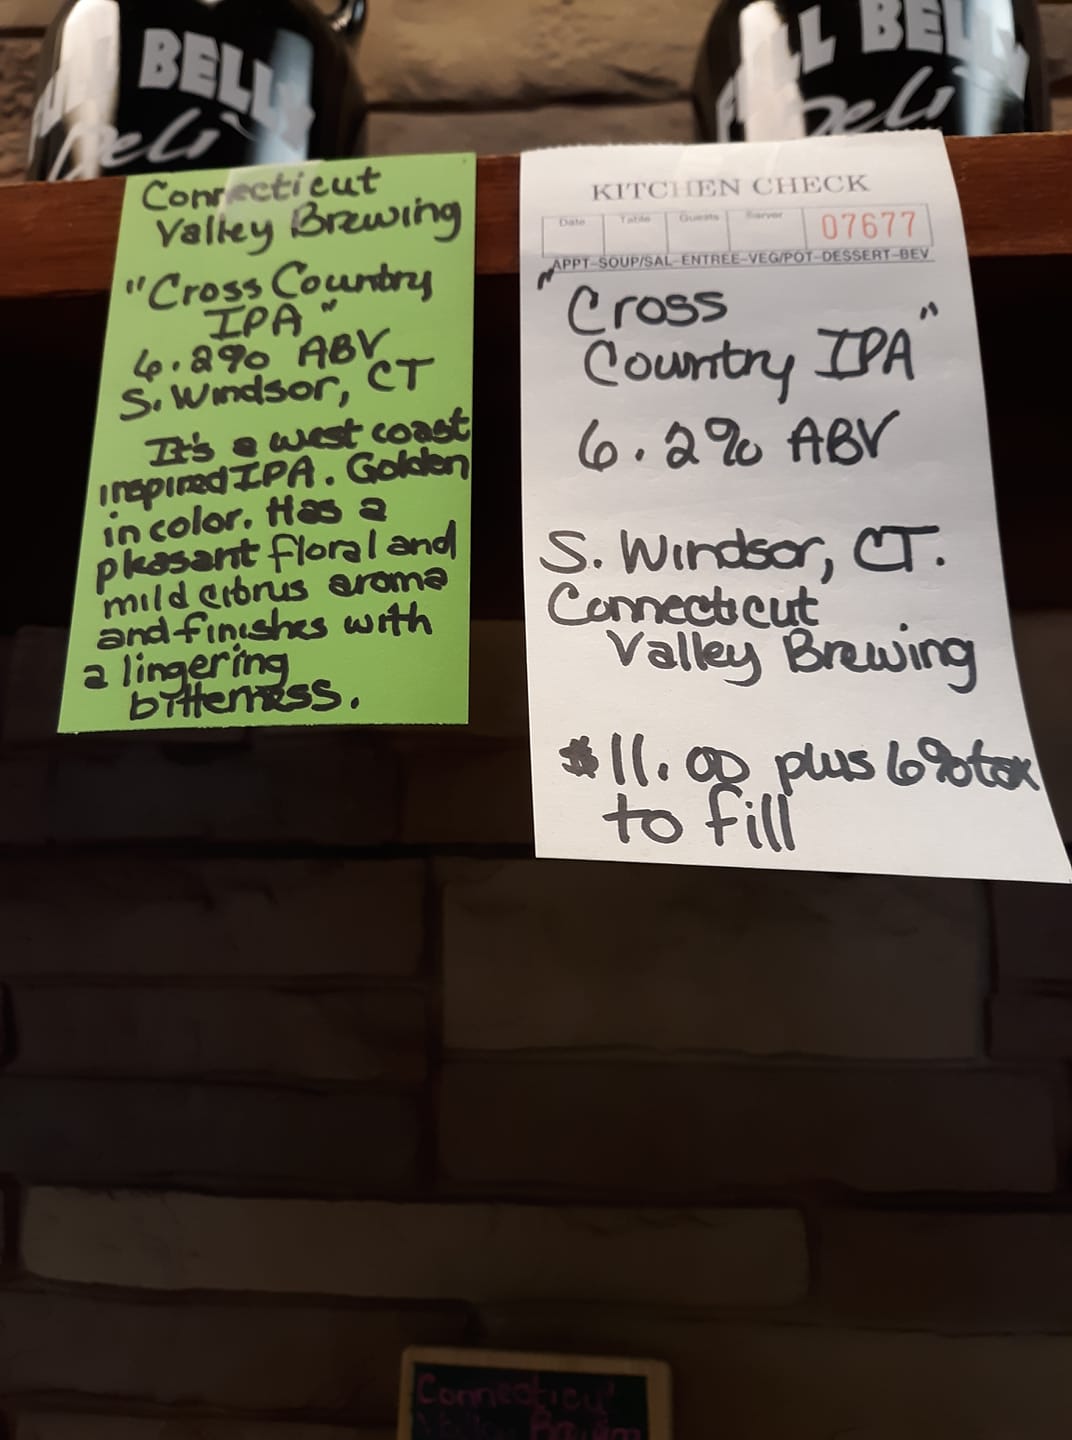 BELLY
Deli
LL BELLY
Deli
Connecticut
Valley Brewing
"Cross Country
IPA"
6.2% ABV
S. Windsor, CT
It's a west coast
inspired IPA. Golden
in color. Has a
pleasant floral and
mild citrus aroma
and finishes with
a lingering
bitterness.
KITCHEN CHECK
Date Table Guests Server 07677
APPT-SOUP/SAL-ENTREE-VEG/POT-DESSERT-BEV
"Cross
Country IPA"
6.2% ABV
S. Windsor, CT.
Connecticut
Valley Brewing
$11.00 plus 6% tax
to fill
Connecticu
Brewin